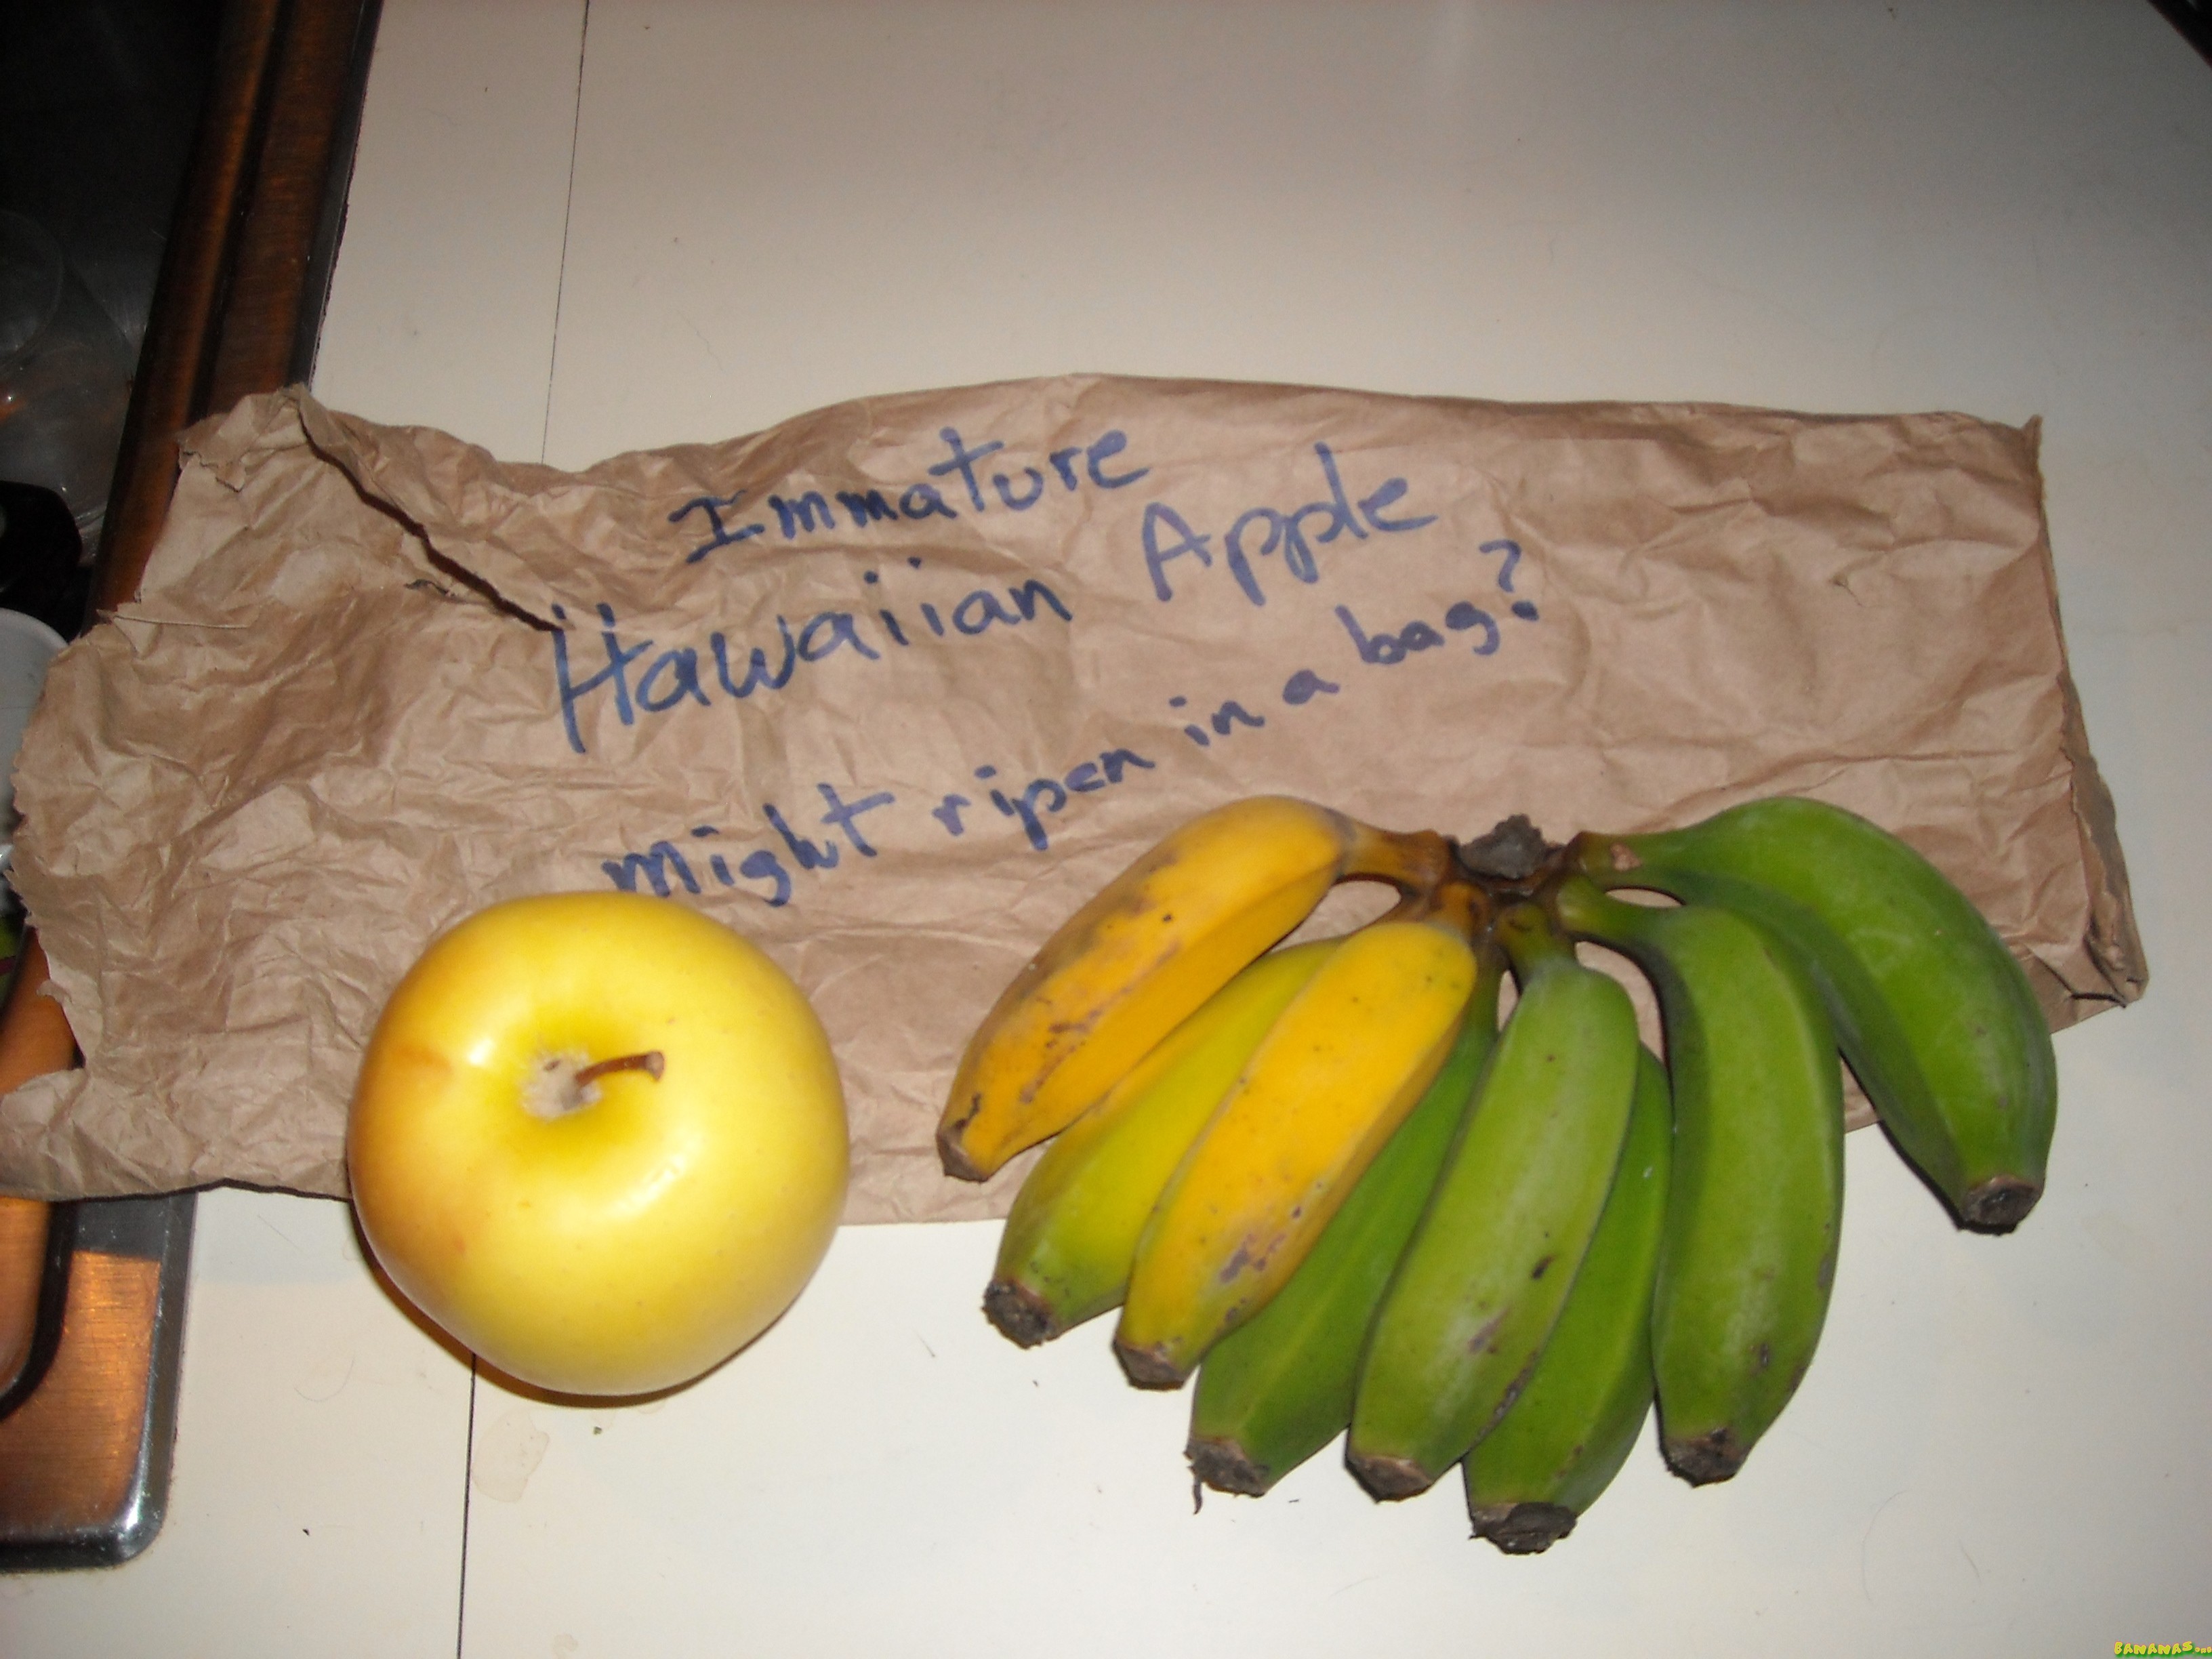 Immature
Hawaiian Apple
might ripen in a bag?
BANANAS.ORG